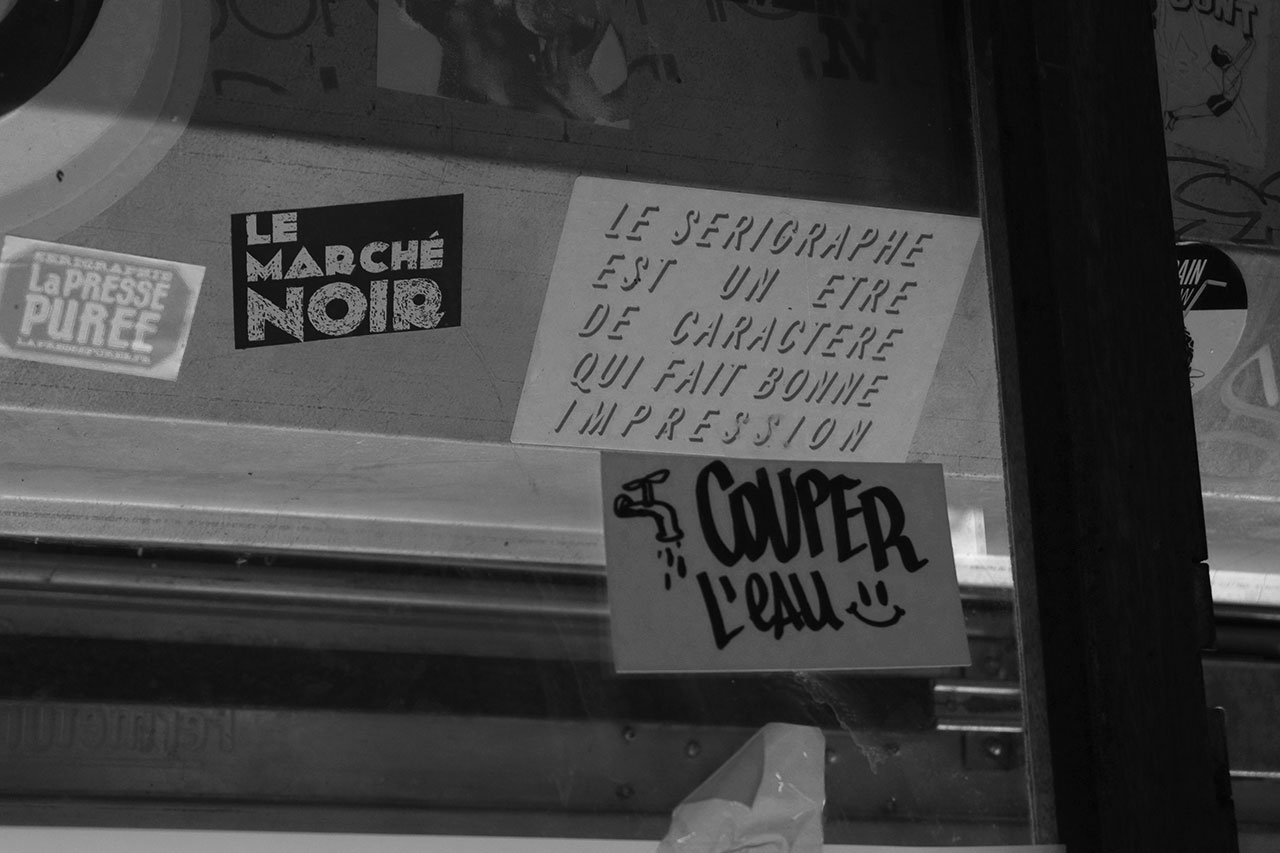 SERIGRAPHIE
La PRESSE
PURÉE
LE
MARCHÉ
NOIR
LE SERIGRAPHE
EST UN ETRE
DE CARACTERE
QUI FAIT BONNE
IMPRESSION
COUPER
L'eAU